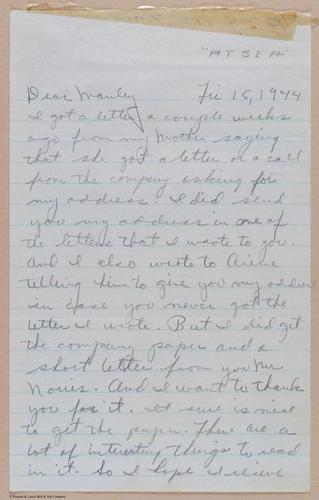 "AT SEA"
Dear Manley Fri 15, 1944
I got a letter a couple weeks
ago from my Mother saying
that she got a letter or a call
from the company asking for
my address. I did send
you my address in one of
the letters that I wrote to you.
And I also wrote to
telling him to give you my address
in case you never got the
letter I wrote. But I did get
the company paper and a
short letter from you Mr
Norris. And I want to thank
you for it. It sure is nice
to get the paper. There are a
lot of interesting things to read
in it. So I hope I recieve